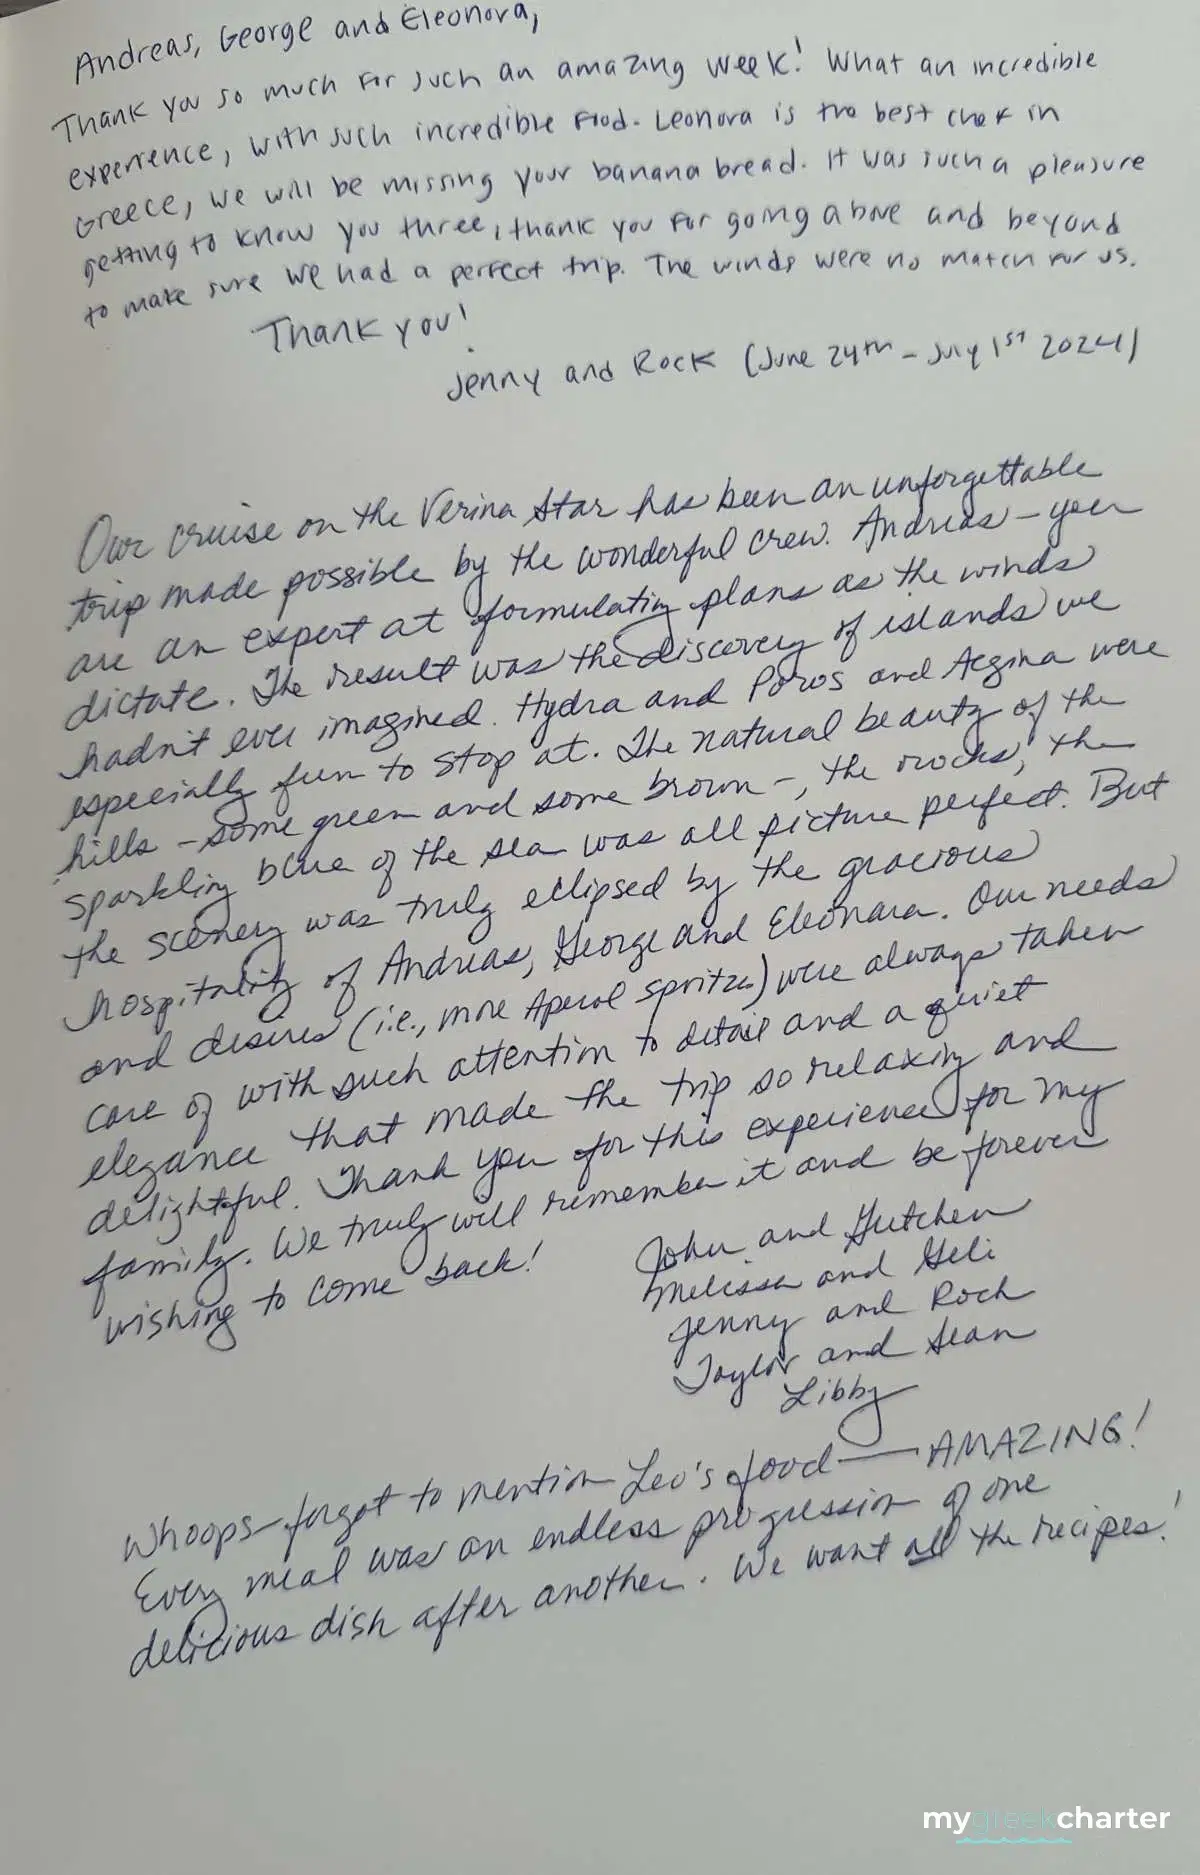 Andreas, George and Eleonora,
Thank you so much for such an amazing week! What an incredible
experience, with such incredible food. Leonora is the best chef in
Greece, we will be missing your banana bread. It was such a pleasure
getting to know you three, thank you for going above and beyond
to make sure we had a perfect trip. The winds were no match for us.
Thank you!
Jenny and Rock (June 24th - July 1st 2024)
Our cruise on the Verina Star has been an unforgettable
trip made possible by the wonderful crew. Andreas - you
are an expert at formulating plans as the winds
dictate. The result was the discovery of islands we
hadn't ever imagined. Hydra and Poros and Aegina were
especially fun to stop at. The natural beauty of the
hills - some green and some brown -, the rocks, the
sparkling blue of the sea was all picture perfect. But
the scenery was truly eclipsed by the gracious
hospitality of Andreas, George and Eleonara. Our needs
and desires (i.e., more Aperol spritzes) were always taken
care of with such attention to detail and a quiet
elegance that made the trip so relaxing and
delightful. Thank you for this experience for my
family. We truly will remember it and be forever
wishing to come back!
John and Gretchen
Melissa and Geli
Jenny and Rock
Taylor and Sean
Libby
Whoops - forgot to mention Leo's food — AMAZING!
Every meal was an endless progression of one
delicious dish after another. We want all the recipes!
mygreekcharter